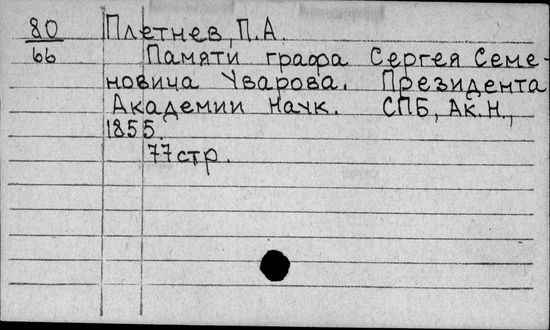 80 Плетнев, П.А.
66 Памяти графа Сергея Семе-
новича Уварова. Президента
Академии Наук. СПБ, Ак.Н.,
1855.
77 стр.